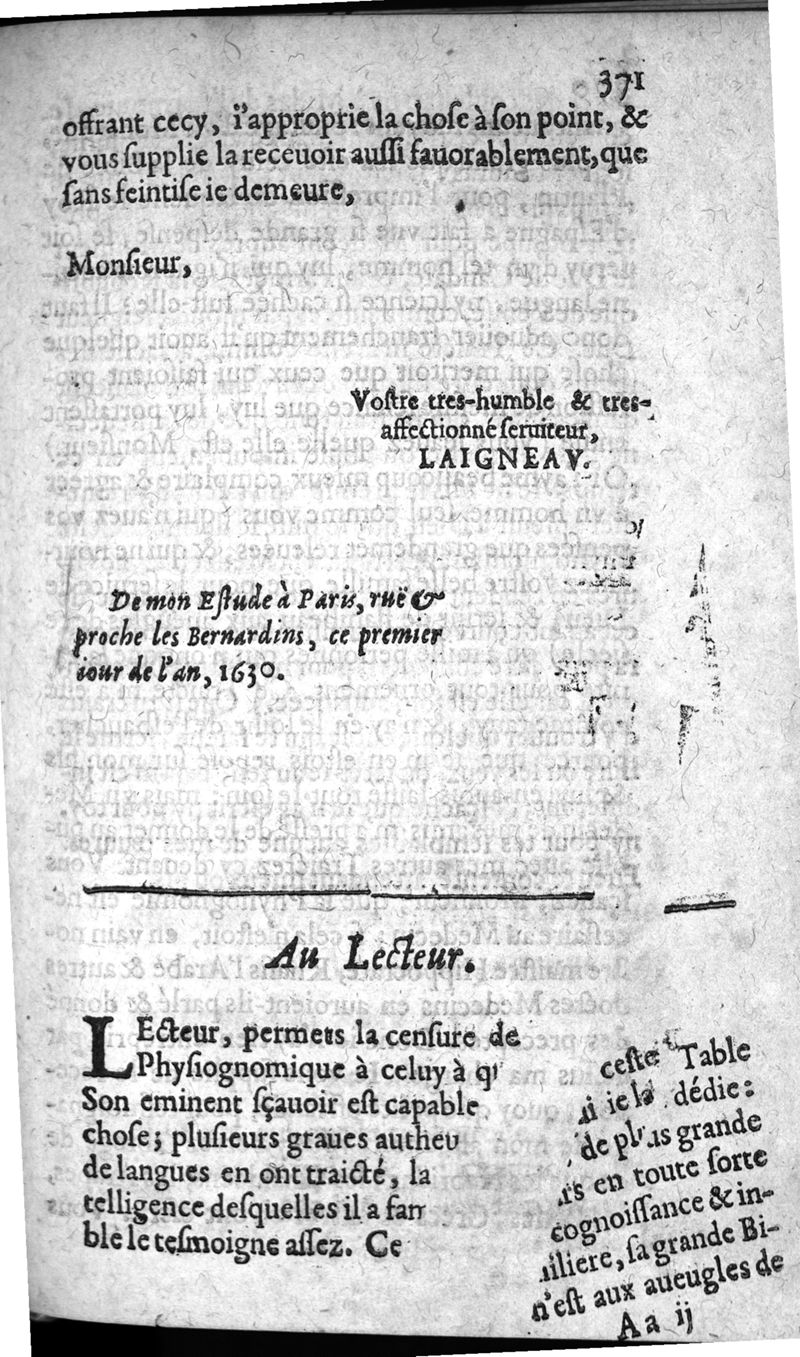 371
offrant cecy, i'approprie la choſe à ſon point, &
vous ſupplie la receuoir auſſi fauorablement, que
ſans feintiſe ie demeure,
Monſieur,
Voſtre tres-humble & tres-
affectionné ſeruiteur,
LAIGNEAV.
De mon Eſtude à Paris, ruë &
proche les Bernardins, ce premier
iour de l'an, 1630.
Au Lecteur.
LEcteur, permets la cenſure de ceſte Table
Phyſiognomique à celuy à qui ie la dédie:
Son eminent ſçauoir eſt capable de plus grande
choſe; pluſieurs graues autheurs en toute ſorte
de langues en ont traicté, la cognoiſſance & in-
telligence deſquelles il a familiere, ſa grande Bi-
ble le teſmoigne aſſez. Ce n'eſt aux aueugles de
Aa ij